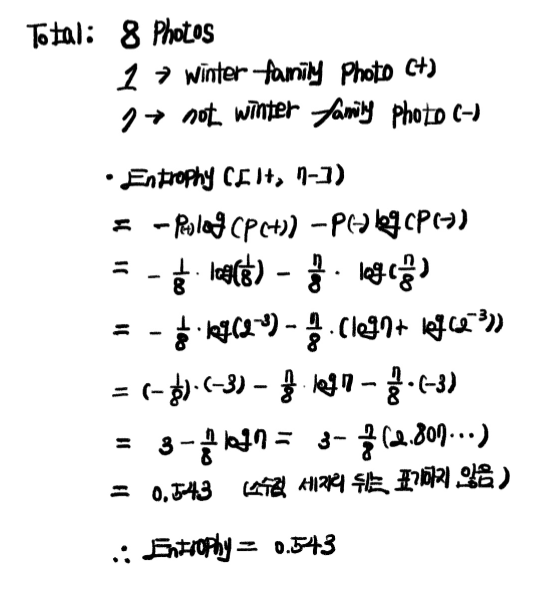 Total: 8 Photos
1 → winter family photo (+)
7 → not winter family photo (-)
• Entrophy ([1+, 7-])
= -P(+)log(P(+)) - P(-)log(P(-))
= - 1/8 · log(1/8) - 7/8 · log(7/8)
= - 1/8 · log(2^-3) - 7/8 · (log7 + log(2^-3))
= (-1/8)·(-3) - 7/8 log7 - 7/8·(-3)
= 3 - 7/8 log7 = 3 - 7/8 (2.807...)
= 0.543 (소수점 세자리 뒤는 표기하지 않음)
∴ Entrophy = 0.543